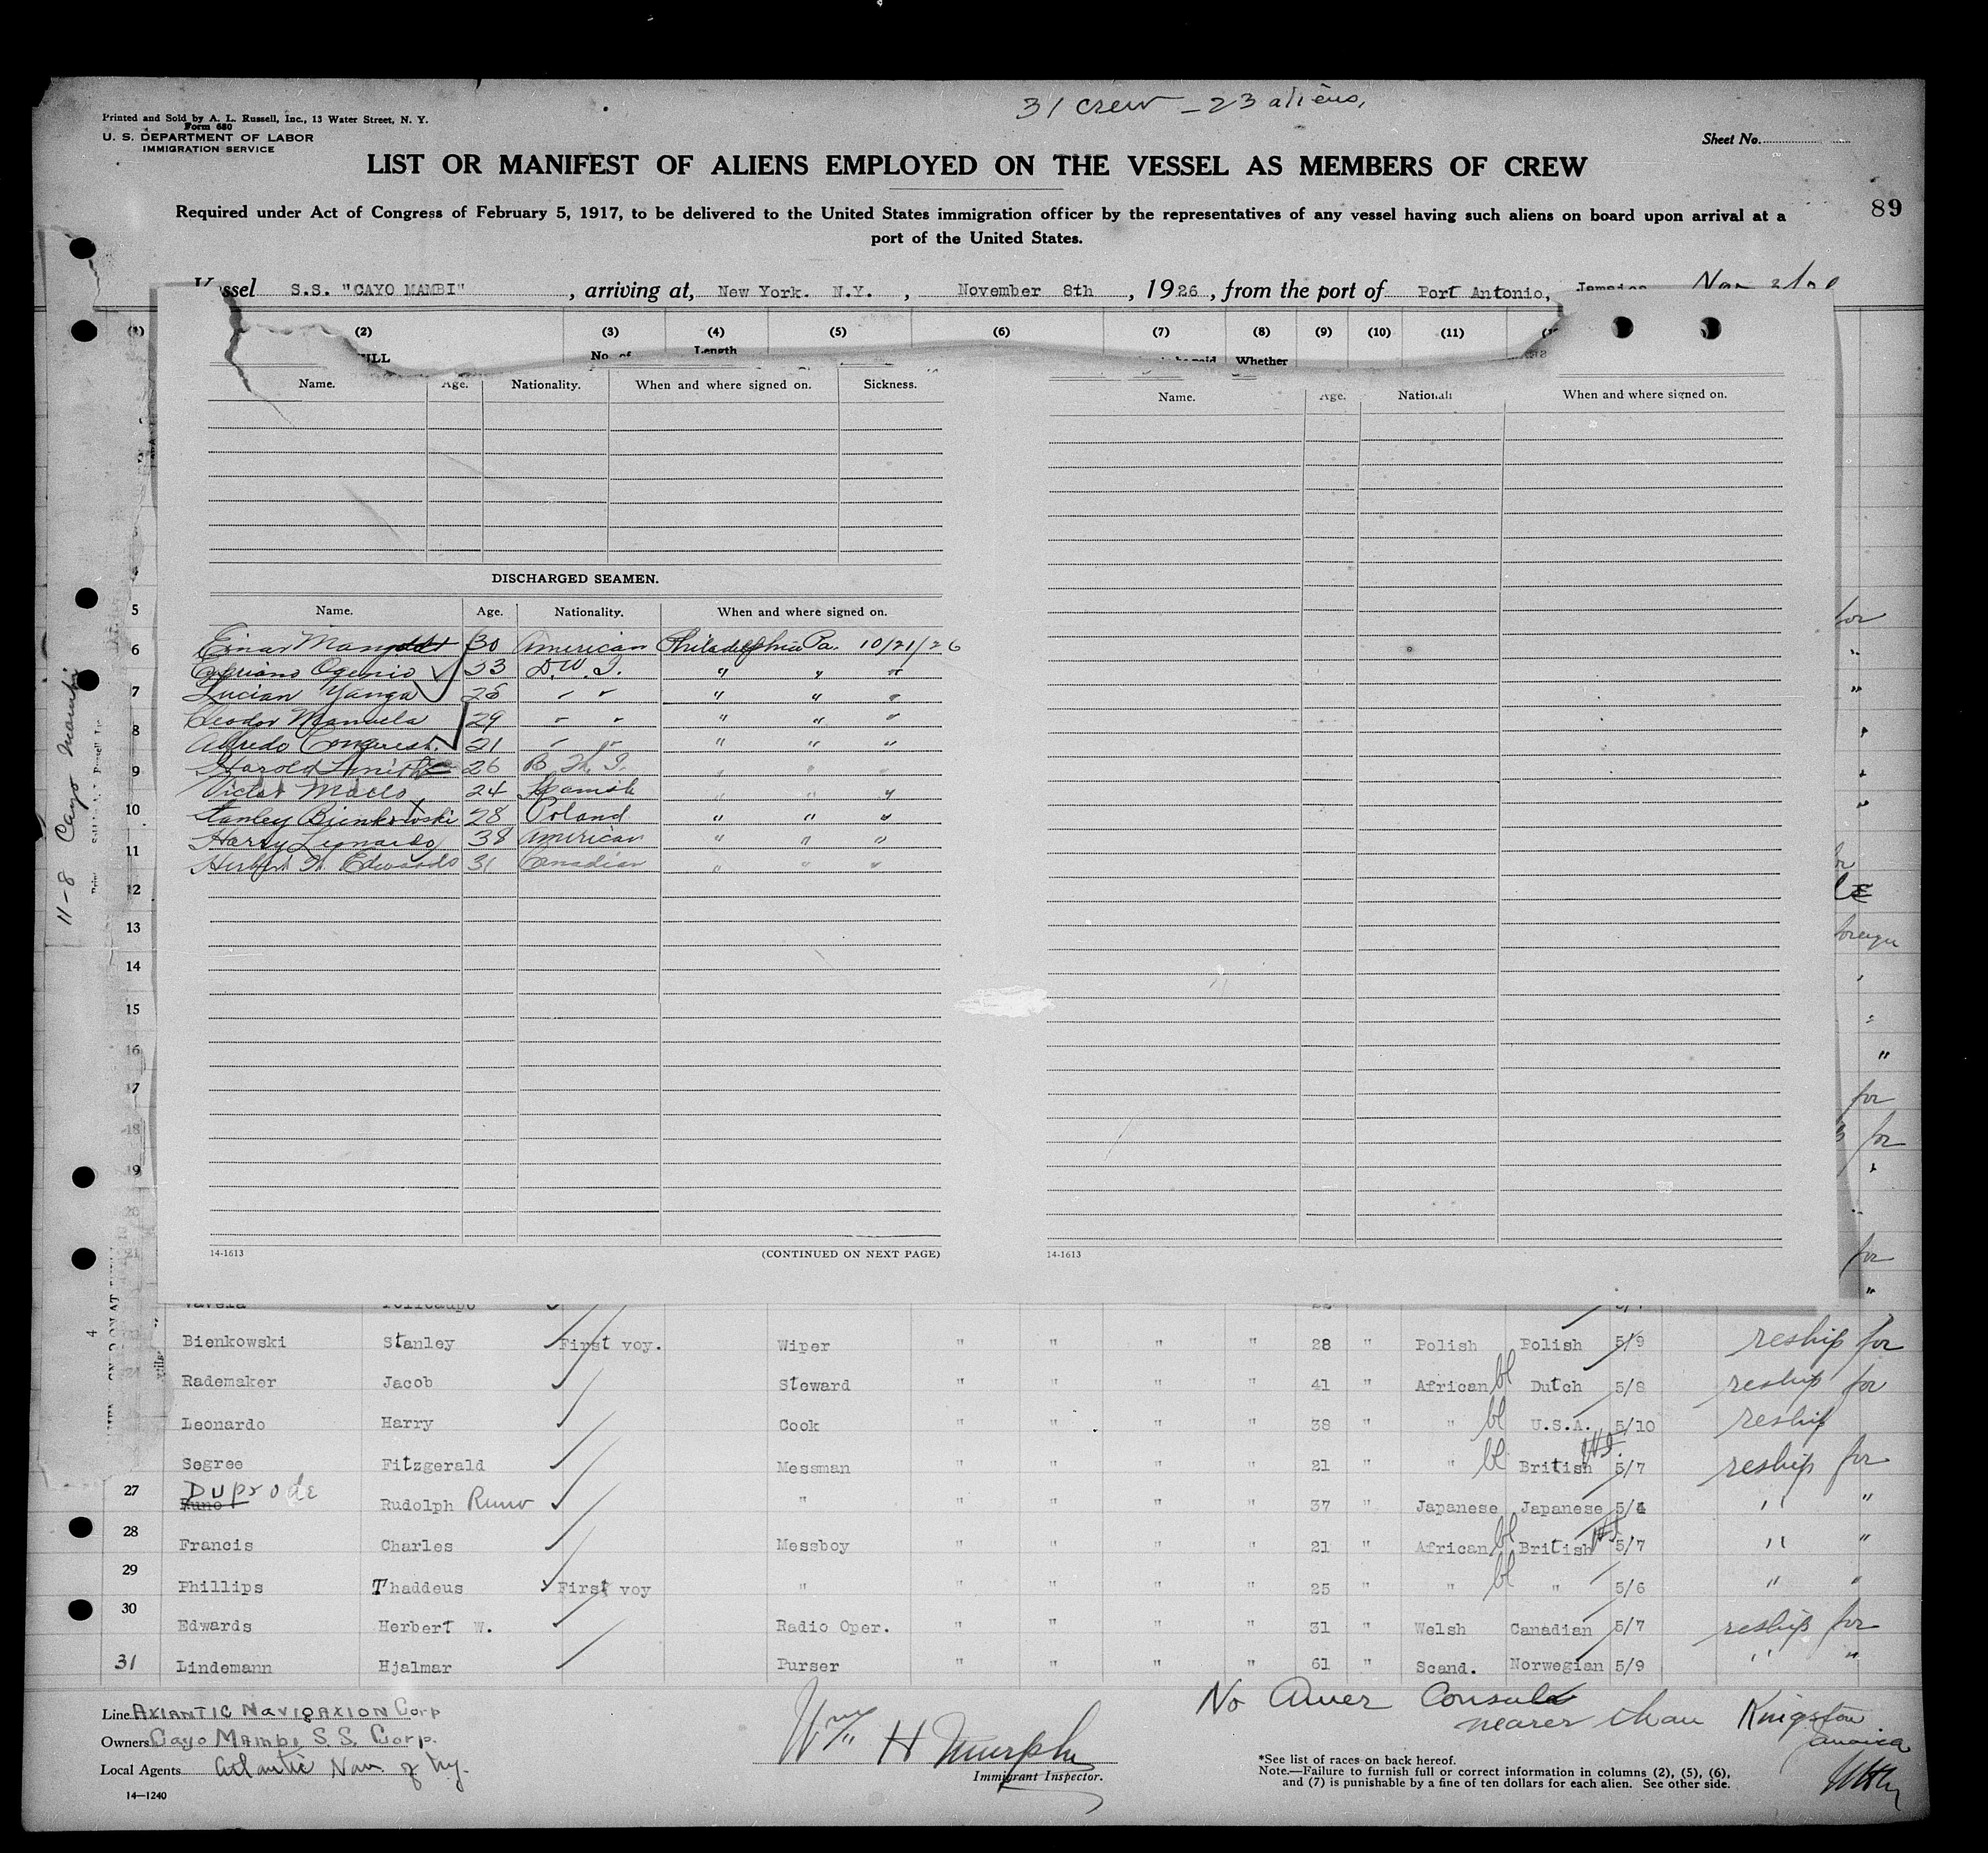 31 crew - 23 aliens,
Printed and Sold by A. L. Russell, Inc., 13 Water Street, N. Y.
Form 680
U. S. DEPARTMENT OF LABOR
IMMIGRATION SERVICE
Sheet No.
LIST OR MANIFEST OF ALIENS EMPLOYED ON THE VESSEL AS MEMBERS OF CREW
Required under Act of Congress of February 5, 1917, to be delivered to the United States immigration officer by the representatives of any vessel having such aliens on board upon arrival at a
port of the United States.
89
Vessel S.S. "CAYO MAMBI" , arriving at, New York. N.Y. , November 8th , 1926 , from the port of Port Antonio, Jamaica
(1) (2) (3) (4) (5) (6) (7) (8) (9) (10) (11)
No. of Length Whether
Name. Age. Nationality. When and where signed on. Sickness.
Name. Age. Nationali When and where signed on.
DISCHARGED SEAMEN.
Name. Age. Nationality. When and where signed on.
Einar 30 American Philadelphia Pa. 10/21/26
Cypriano Ogenio 23 D.W.I. " " "
Lucian Yanga 25 " " " " "
Theodor Manuela 29 " " " " "
Alfredo 21 " " " " "
Harold Smith 26 B.W.I. " " "
Victor Macto 24 Spanish " " "
Stanley Bienkowski 28 Poland " " "
Harry Leonardo 38 American " " "
Herbert W. Edwards 31 Canadian " " "
5
6
7
8
9
10
11
12
13
14
15
16
17
18
19
20
21
11-8 Cayo Mambi
14-1613 (CONTINUED ON NEXT PAGE) 14-1613
Bienkowski Stanley First voy. Wiper " " " " 28 " Polish Polish 5/9 reship for
Rademaker Jacob Steward " " " " 41 " African bl Dutch 5/8 reship for
Leonardo Harry Cook " " " " 38 " " bl U.S.A. 5/10 reship
Segree Fitzgerald Messman " " " " 21 " " bl British W.I. 5/7 reship for
27 Duprode
Runo Rudolph Runo " " " " " 37 " Japanese Japanese 5/4 " "
28 Francis Charles Messboy " " " " 21 " African bl British W.I. 5/7 " "
29 Phillips Thaddeus First voy " " " " " 25 " " bl " 5/6 " "
30 Edwards Herbert W. Radio Oper. " " " " 31 " Welsh Canadian 5/7 reship for
31 Lindemann Hjalmar Purser " " " " 61 " Scand. Norwegian 5/9 " "
Line Atlantic Navigation Corp
Owners Cayo Mambi S.S. Corp.
Local Agents Atlantic Nav of Ny.
14—1240
Wm H Murphy
Immigrant Inspector.
No Amer Consul
nearer than Kingston
Jamaica
*See list of races on back hereof.
Note.—Failure to furnish full or correct information in columns (2), (5), (6),
and (7) is punishable by a fine of ten dollars for each alien. See other side.